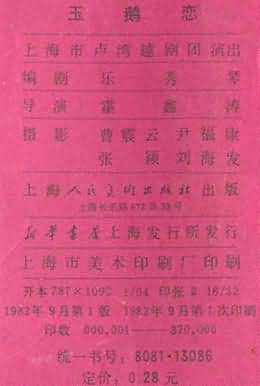 玉鹅恋
上海市卢湾越剧团演出
编剧 乐秀琴
导演 霍鑫涛
摄影 曹震云 尹福康
张颖 刘海发
上海人民美术出版社出版
上海长乐路672弄33号
新华书店上海发行所发行
上海市美术印刷厂印刷
开本787×1092 1/64 印张 2 16/32
1982年9月第1版 1982年9月第1次印刷
印数 000,001——370,000
统一书号：8081·13086
定价：0.28元